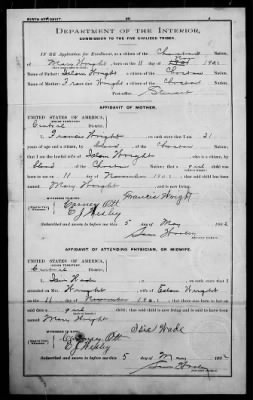 BIRTH AFFIDAVIT.
DEPARTMENT OF THE INTERIOR,
COMMISSION TO THE FIVE CIVILIZED TRIBES.
IN RE Application for Enrollment, as a citizen of the Choctaw Nation,
of Mary Wright, born on the 11 day of Nov, 1901
Name of Father: Wright a citizen of the Choctaw Nation.
Name of Mother: Frances Wright a citizen of the Choctaw Nation.
Post-office
AFFIDAVIT OF MOTHER.
UNITED STATES OF AMERICA,
INDIAN TERRITORY,
Central District.
I, Frances Wright, on oath state that I am 21
years of age and a citizen, by blood, of the Choctaw Nation;
that I am the lawful wife of Wright, who is a citizen, by
blood of the Choctaw Nation; that a girl child was
born to me on 11 day of November, 1901, that said child has been
named Mary Wright, and is now living.
Frances Wright
WITNESSES TO MARK:
Subscribed and sworn to before me this 5 day of May, 1902
AFFIDAVIT OF ATTENDING PHYSICIAN, OR MIDWIFE.
UNITED STATES OF AMERICA,
INDIAN TERRITORY,
Central District.
I, Wade, on oath state that I
attended on Mrs. Wright, wife of Wright
on the 11 day of November, 1901, that there was born to her on
said date a girl child; that said child is now living and is said to have been
named Mary Wright
Wade
WITNESSES TO MARK:
Subscribed and sworn to before me this 5 day of May, 1902